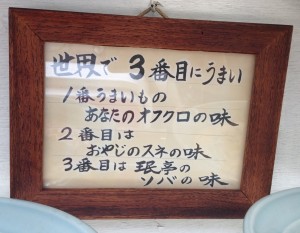 世界で 3番目にうまい
1番うまいもの
あなたのオフクロの味
2番目は
おやじのスネの味
3番目は 珉亭の
ソバの味